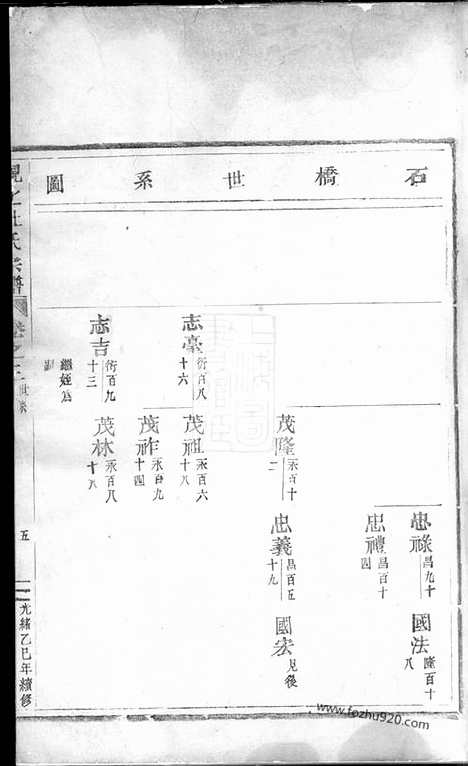 石橋世系圖
忠祿 昌九十
國法 隆百十八
忠禮 昌百十四
茂隆 永百十二
忠義 昌百五十九
國宏 見後
志臺 衍百八十六
茂祖 永百六十八
茂祚 永百九十四
志吉 衍百九十三
繼姪為嗣
茂林 永百八十八
杜氏宗譜
卷之三 世系
五
光緒乙巳年續修
www.fozhu920.com